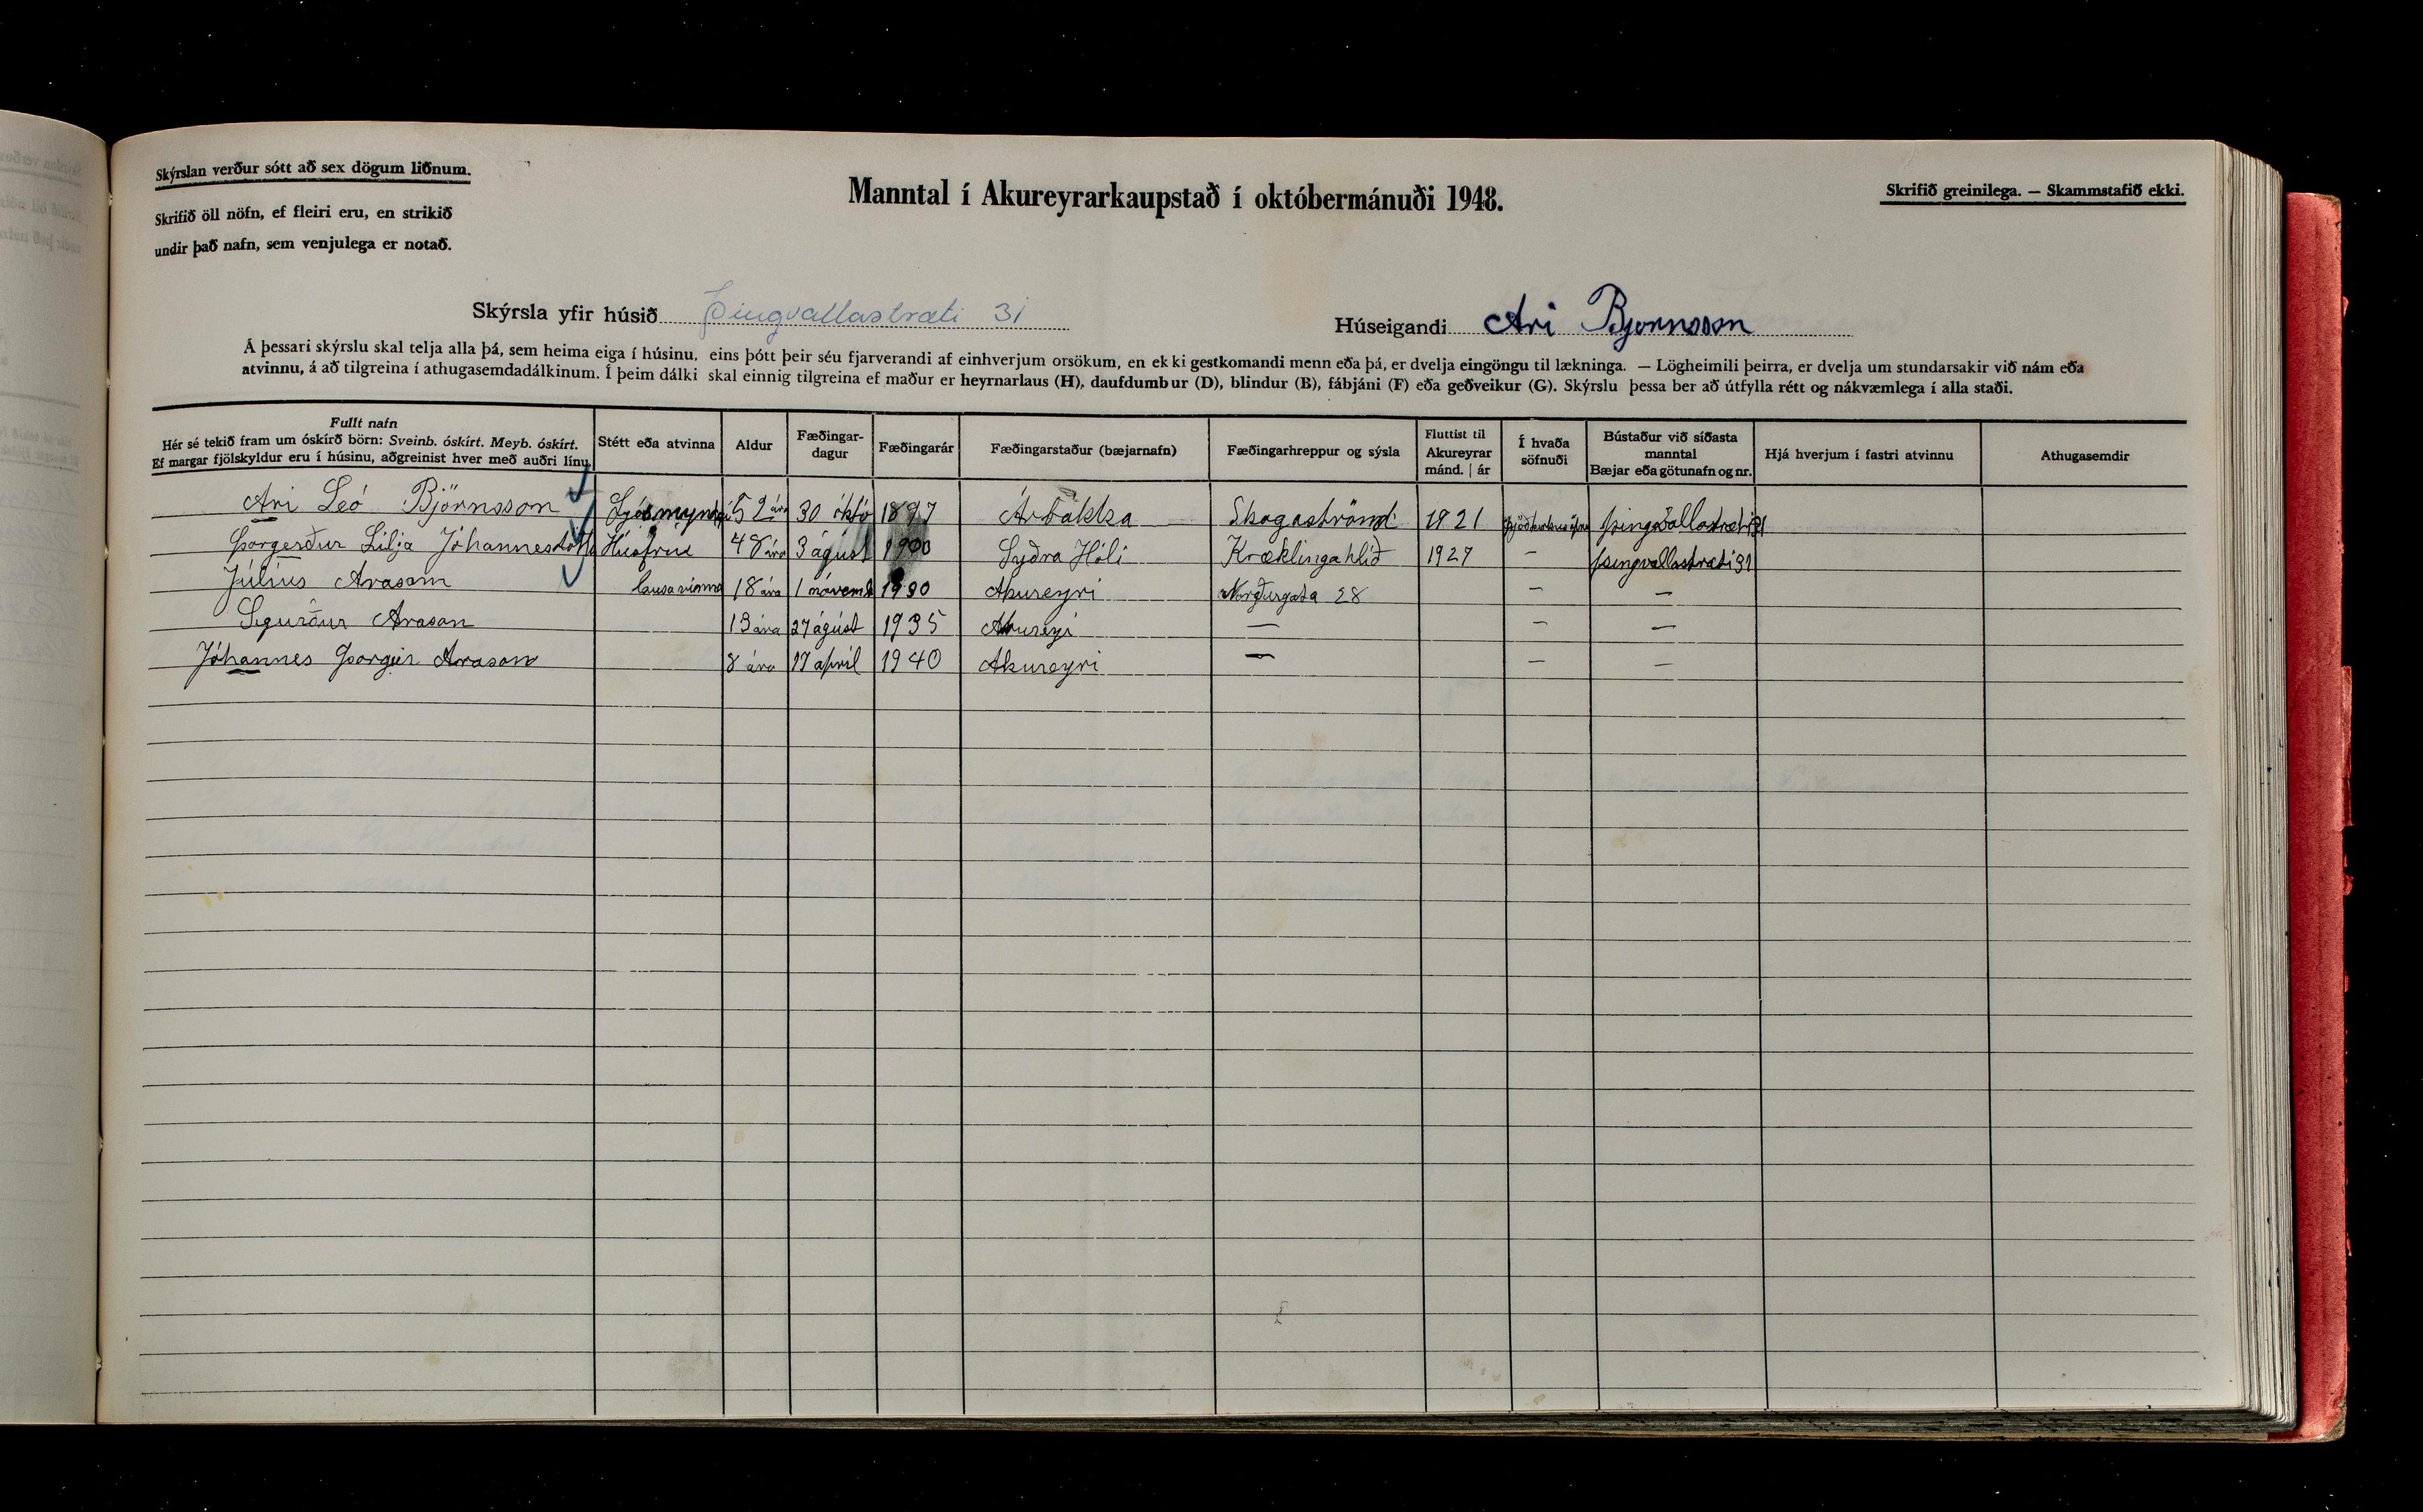 Skýrslan verður sótt að sex dögum liðnum.
Skrifið öll nöfn, ef fleiri eru, en strikið
undir það nafn, sem venjulega er notað.
Manntal í Akureyrarkaupstað í októbermánuði 1948.
Skrifið greinilega. — Skammstafið ekki.
Skýrsla yfir húsið Þingvallastræti 31
Húseigandi Ari Björnsson
Á þessari skýrslu skal telja alla þá, sem heima eiga í húsinu, eins þótt þeir séu fjarverandi af einhverjum orsökum, en ekki gestkomandi menn eða þá, er dvelja eingöngu til lækninga. — Lögheimili þeirra, er dvelja um stundarsakir við nám eða
atvinnu, á að tilgreina í athugasemdadálkinum. Í þeim dálki skal einnig tilgreina ef maður er heyrnarlaus (H), daufdumbur (D), blindur (B), fábjáni (F) eða geðveikur (G). Skýrslu þessa ber að útfylla rétt og nákvæmlega í alla staði.
Fullt nafn
Hér sé tekið fram um óskírð börn: Sveinb. óskírt. Meyb. óskírt.
Ef margar fjölskyldur eru í húsinu, aðgreinist hver með auðri línu.
Stétt eða atvinna
Aldur
Fæðingar-
dagur
Fæðingarár
Fæðingarstaður (bæjarnafn)
Fæðingarhreppur og sýsla
Fluttist til
Akureyrar
mánd. | ár
Í hvaða
söfnuði
Bústaður við síðasta
manntal
Bæjar eða götunafn og nr.
Hjá hverjum í fastri atvinnu
Athugasemdir
Ari Leó Björnsson 52 ára 30 októ 1897 Árbakka Skagaströnd 1921 Þingvallastræti 31
Þorgerður Lilja Jóhannesdóttir Húsfrú 48 ára 3 ágúst 1900 Syðra Hóli Kræklingahlíð 1927 — Þingvallastræti 31
Júlíus Arason lausavinna 18 ára 1 nóvemb 1930 Akureyri Norðurgata 28 — —
Sigurður Arason 13 ára 27 ágúst 1935 Akureyi — — —
Jóhannes Þorgeir Arason 8 ára 17 apríl 1940 Akureyri — — —